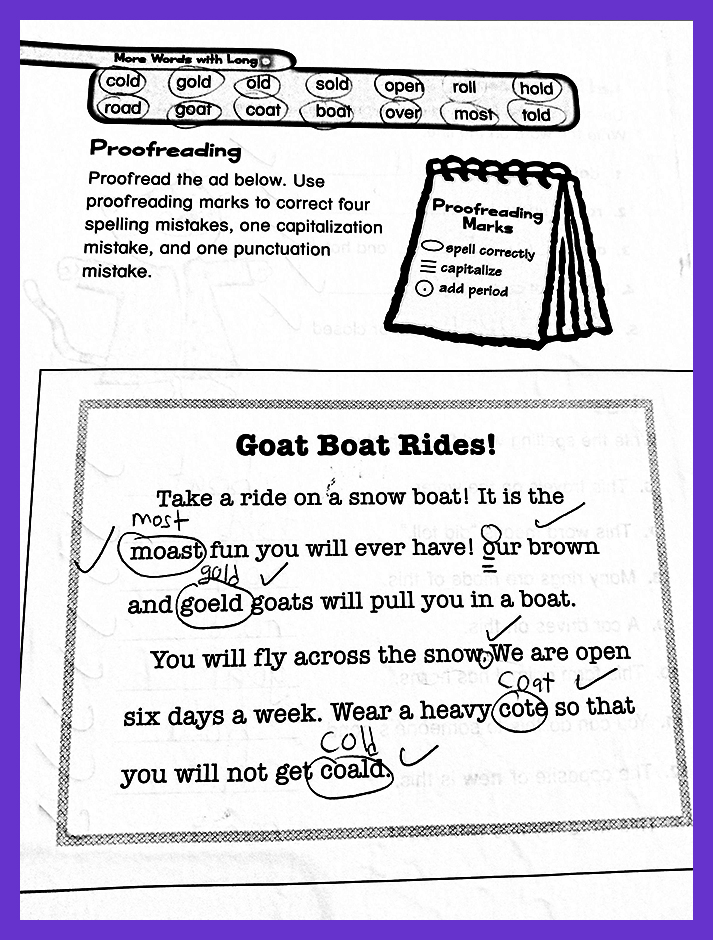 More Words with Long o
cold gold old sold open roll hold
road goat coat boat over most told
Proofreading
Proofread the ad below. Use
proofreading marks to correct four
spelling mistakes, one capitalization
mistake, and one punctuation
mistake.
Proofreading
Marks
spell correctly
capitalize
add period
Goat Boat Rides!
Take a ride on a snow boat! It is the
most
moast fun you will ever have! our brown
gold
and goeld goats will pull you in a boat.
You will fly across the snow We are open
coat
six days a week. Wear a heavy cote so that
cold
you will not get coald.